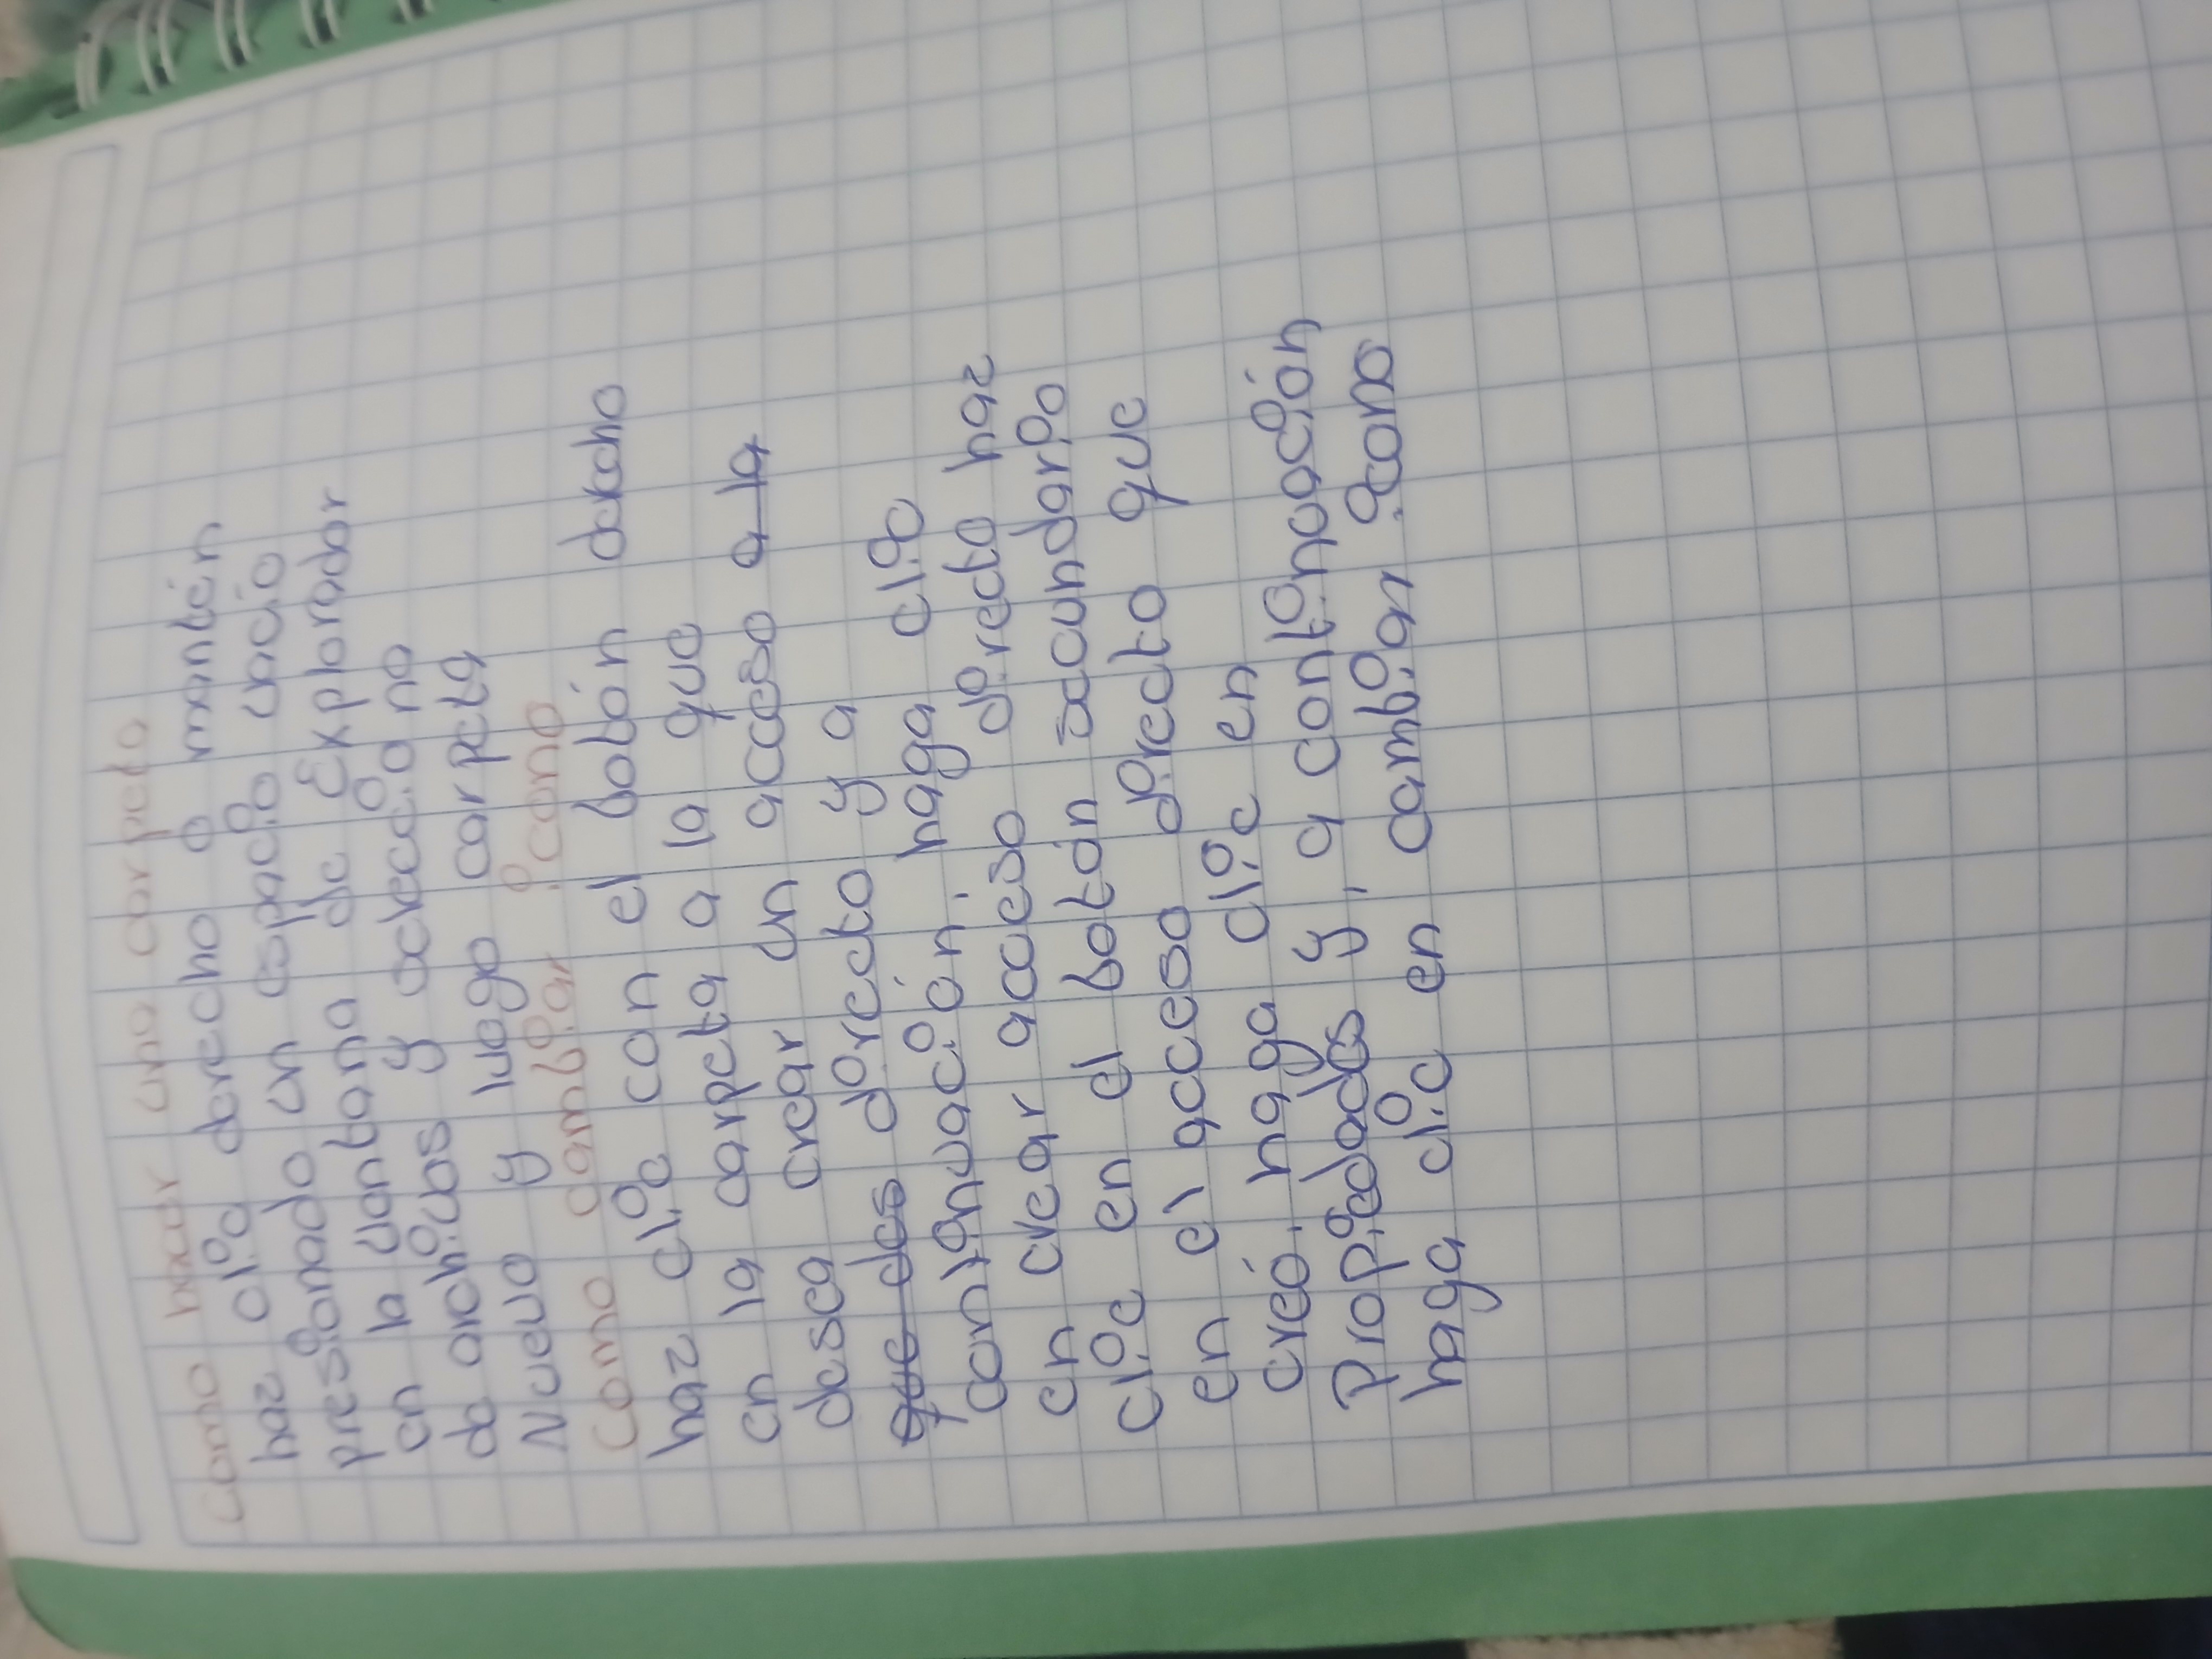 Como hacer una carpeta
haz clic derecho o mantén
presionado un espacio vacío
en la ventana de Explorador
de archivos y selecciona no
Nuevo y luego carpeta
Como cambiar icono
haz clic con el botón derecho
en la carpeta a la que
desea crear un acceso a la
que des directo y a
continuación. haga clic
en crear acceso directo haz
clic en el botón secundario
en el acceso directo que
creó. haga clic en
Propiedades y, a continuación
haga clic en cambiar icono